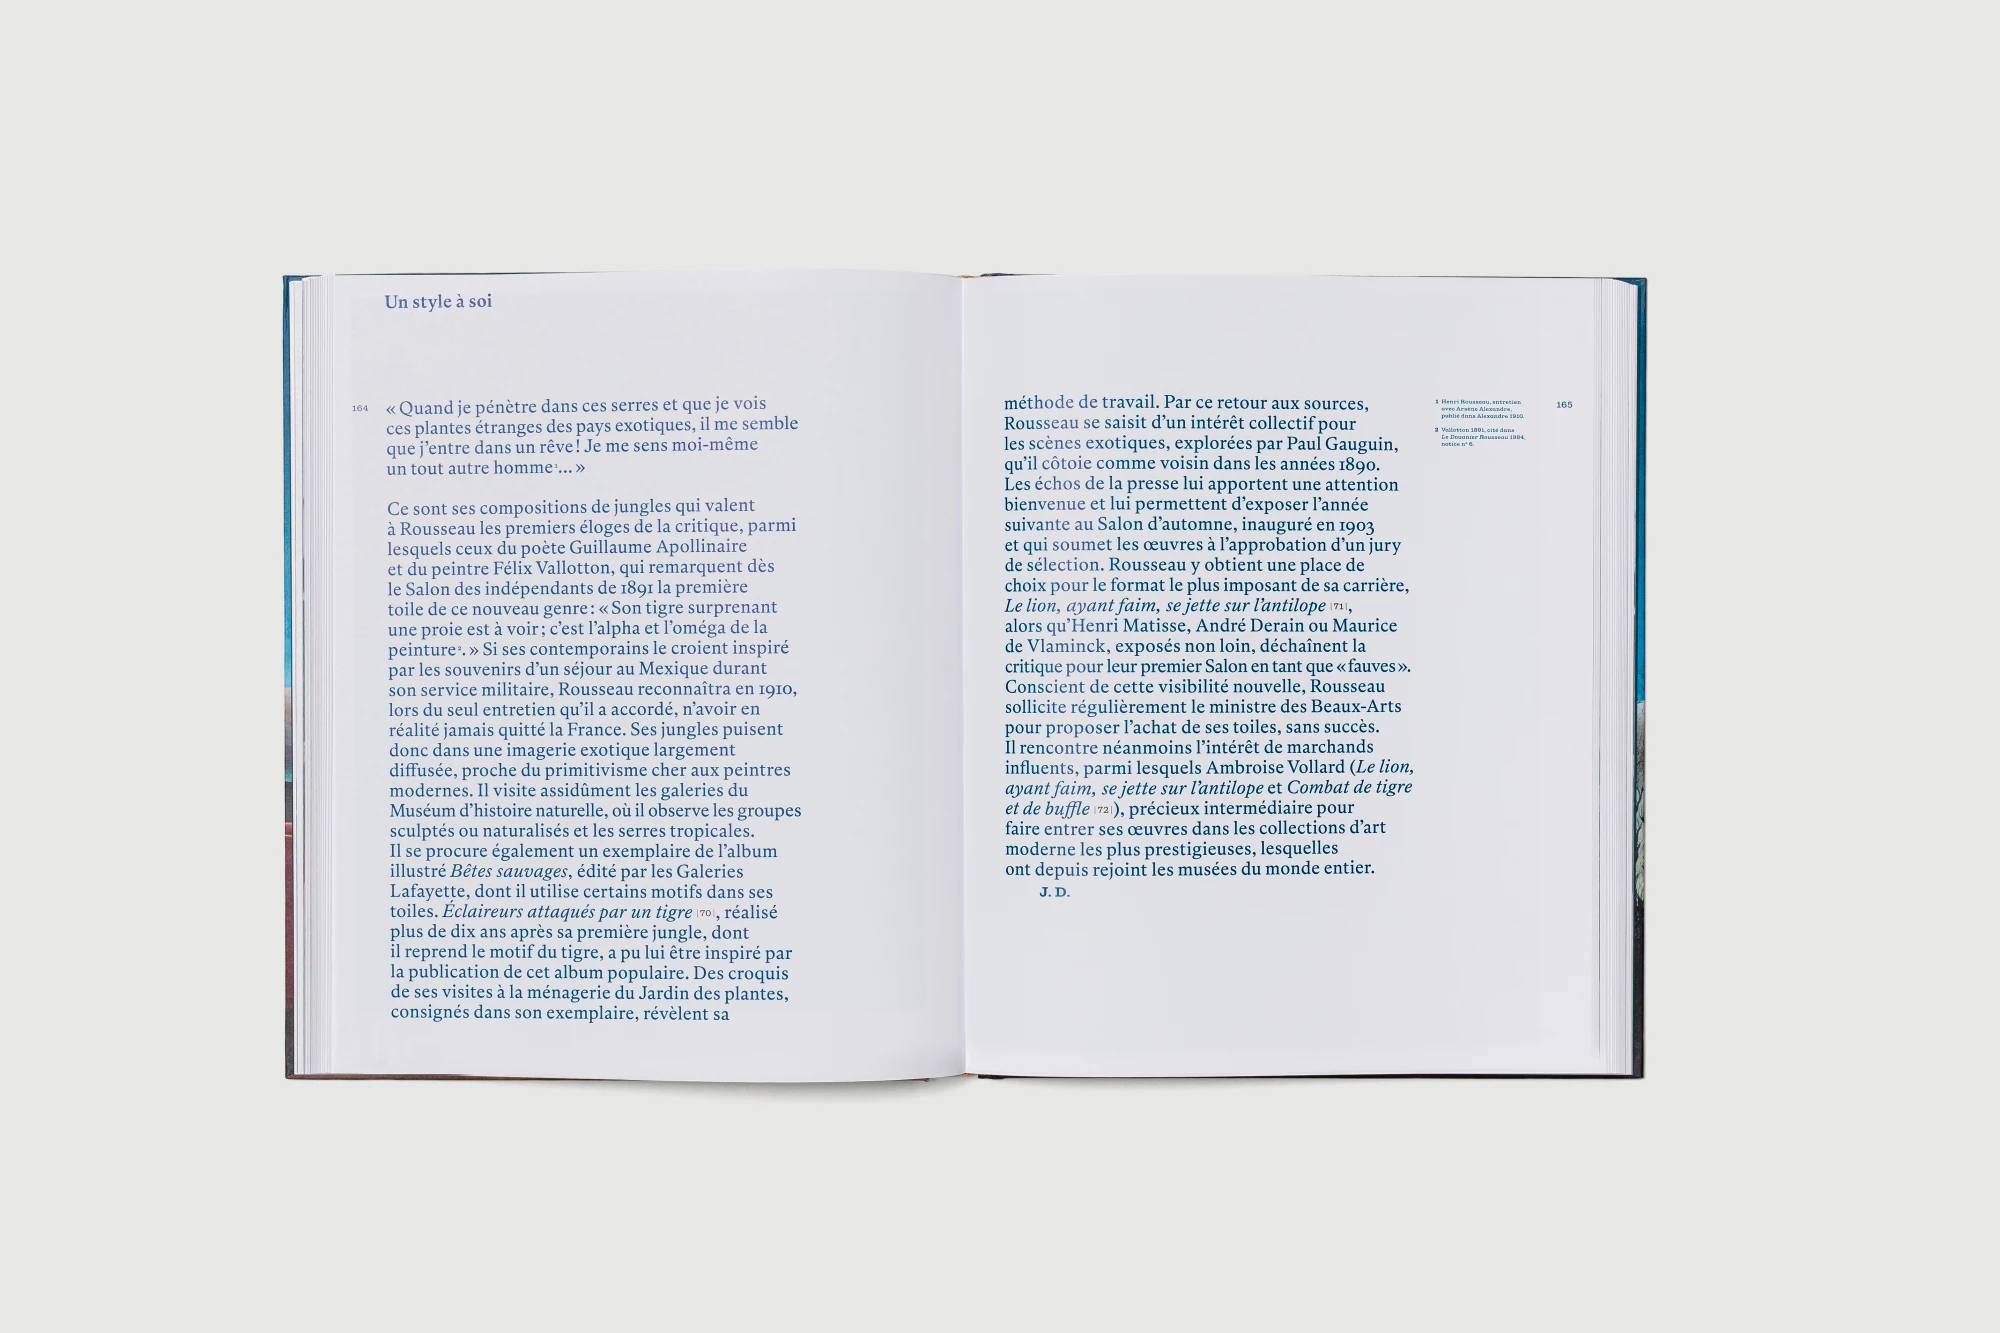 Un style à soi
164
« Quand je pénètre dans ces serres et que je vois
ces plantes étranges des pays exotiques, il me semble
que j’entre dans un rêve ! Je me sens moi-même
un tout autre homme¹… »
Ce sont ses compositions de jungles qui valent
à Rousseau les premiers éloges de la critique, parmi
lesquels ceux du poète Guillaume Apollinaire
et du peintre Félix Vallotton, qui remarquent dès
le Salon des indépendants de 1891 la première
toile de ce nouveau genre : « Son tigre surprenant
une proie est à voir ; c’est l’alpha et l’oméga de la
peinture². » Si ses contemporains le croient inspiré
par les souvenirs d’un séjour au Mexique durant
son service militaire, Rousseau reconnaîtra en 1910,
lors du seul entretien qu’il a accordé, n’avoir en
réalité jamais quitté la France. Ses jungles puisent
donc dans une imagerie exotique largement
diffusée, proche du primitivisme cher aux peintres
modernes. Il visite assidûment les galeries du
Muséum d’histoire naturelle, où il observe les groupes
sculptés ou naturalisés et les serres tropicales.
Il se procure également un exemplaire de l’album
illustré Bêtes sauvages, édité par les Galeries
Lafayette, dont il utilise certains motifs dans ses
toiles. Éclaireurs attaqués par un tigre |70|, réalisé
plus de dix ans après sa première jungle, dont
il reprend le motif du tigre, a pu lui être inspiré par
la publication de cet album populaire. Des croquis
de ses visites à la ménagerie du Jardin des plantes,
consignés dans son exemplaire, révèlent sa
méthode de travail. Par ce retour aux sources,
Rousseau se saisit d’un intérêt collectif pour
les scènes exotiques, explorées par Paul Gauguin,
qu’il côtoie comme voisin dans les années 1890.
Les échos de la presse lui apportent une attention
bienvenue et lui permettent d’exposer l’année
suivante au Salon d’automne, inauguré en 1903
et qui soumet les œuvres à l’approbation d’un jury
de sélection. Rousseau y obtient une place de
choix pour le format le plus imposant de sa carrière,
Le lion, ayant faim, se jette sur l’antilope |71|,
alors qu’Henri Matisse, André Derain ou Maurice
de Vlaminck, exposés non loin, déchaînent la
critique pour leur premier Salon en tant que « fauves ».
Conscient de cette visibilité nouvelle, Rousseau
sollicite régulièrement le ministre des Beaux-Arts
pour proposer l’achat de ses toiles, sans succès.
Il rencontre néanmoins l’intérêt de marchands
influents, parmi lesquels Ambroise Vollard (Le lion,
ayant faim, se jette sur l’antilope et Combat de tigre
et de buffle |72|), précieux intermédiaire pour
faire entrer ses œuvres dans les collections d’art
moderne les plus prestigieuses, lesquelles
ont depuis rejoint les musées du monde entier.
J. D.
1 Henri Rousseau, entretien
avec Arsène Alexandre,
publié dans Alexandre 1910.
2 Vallotton 1891, cité dans
Le Douanier Rousseau 1984,
notice n° 6.
165